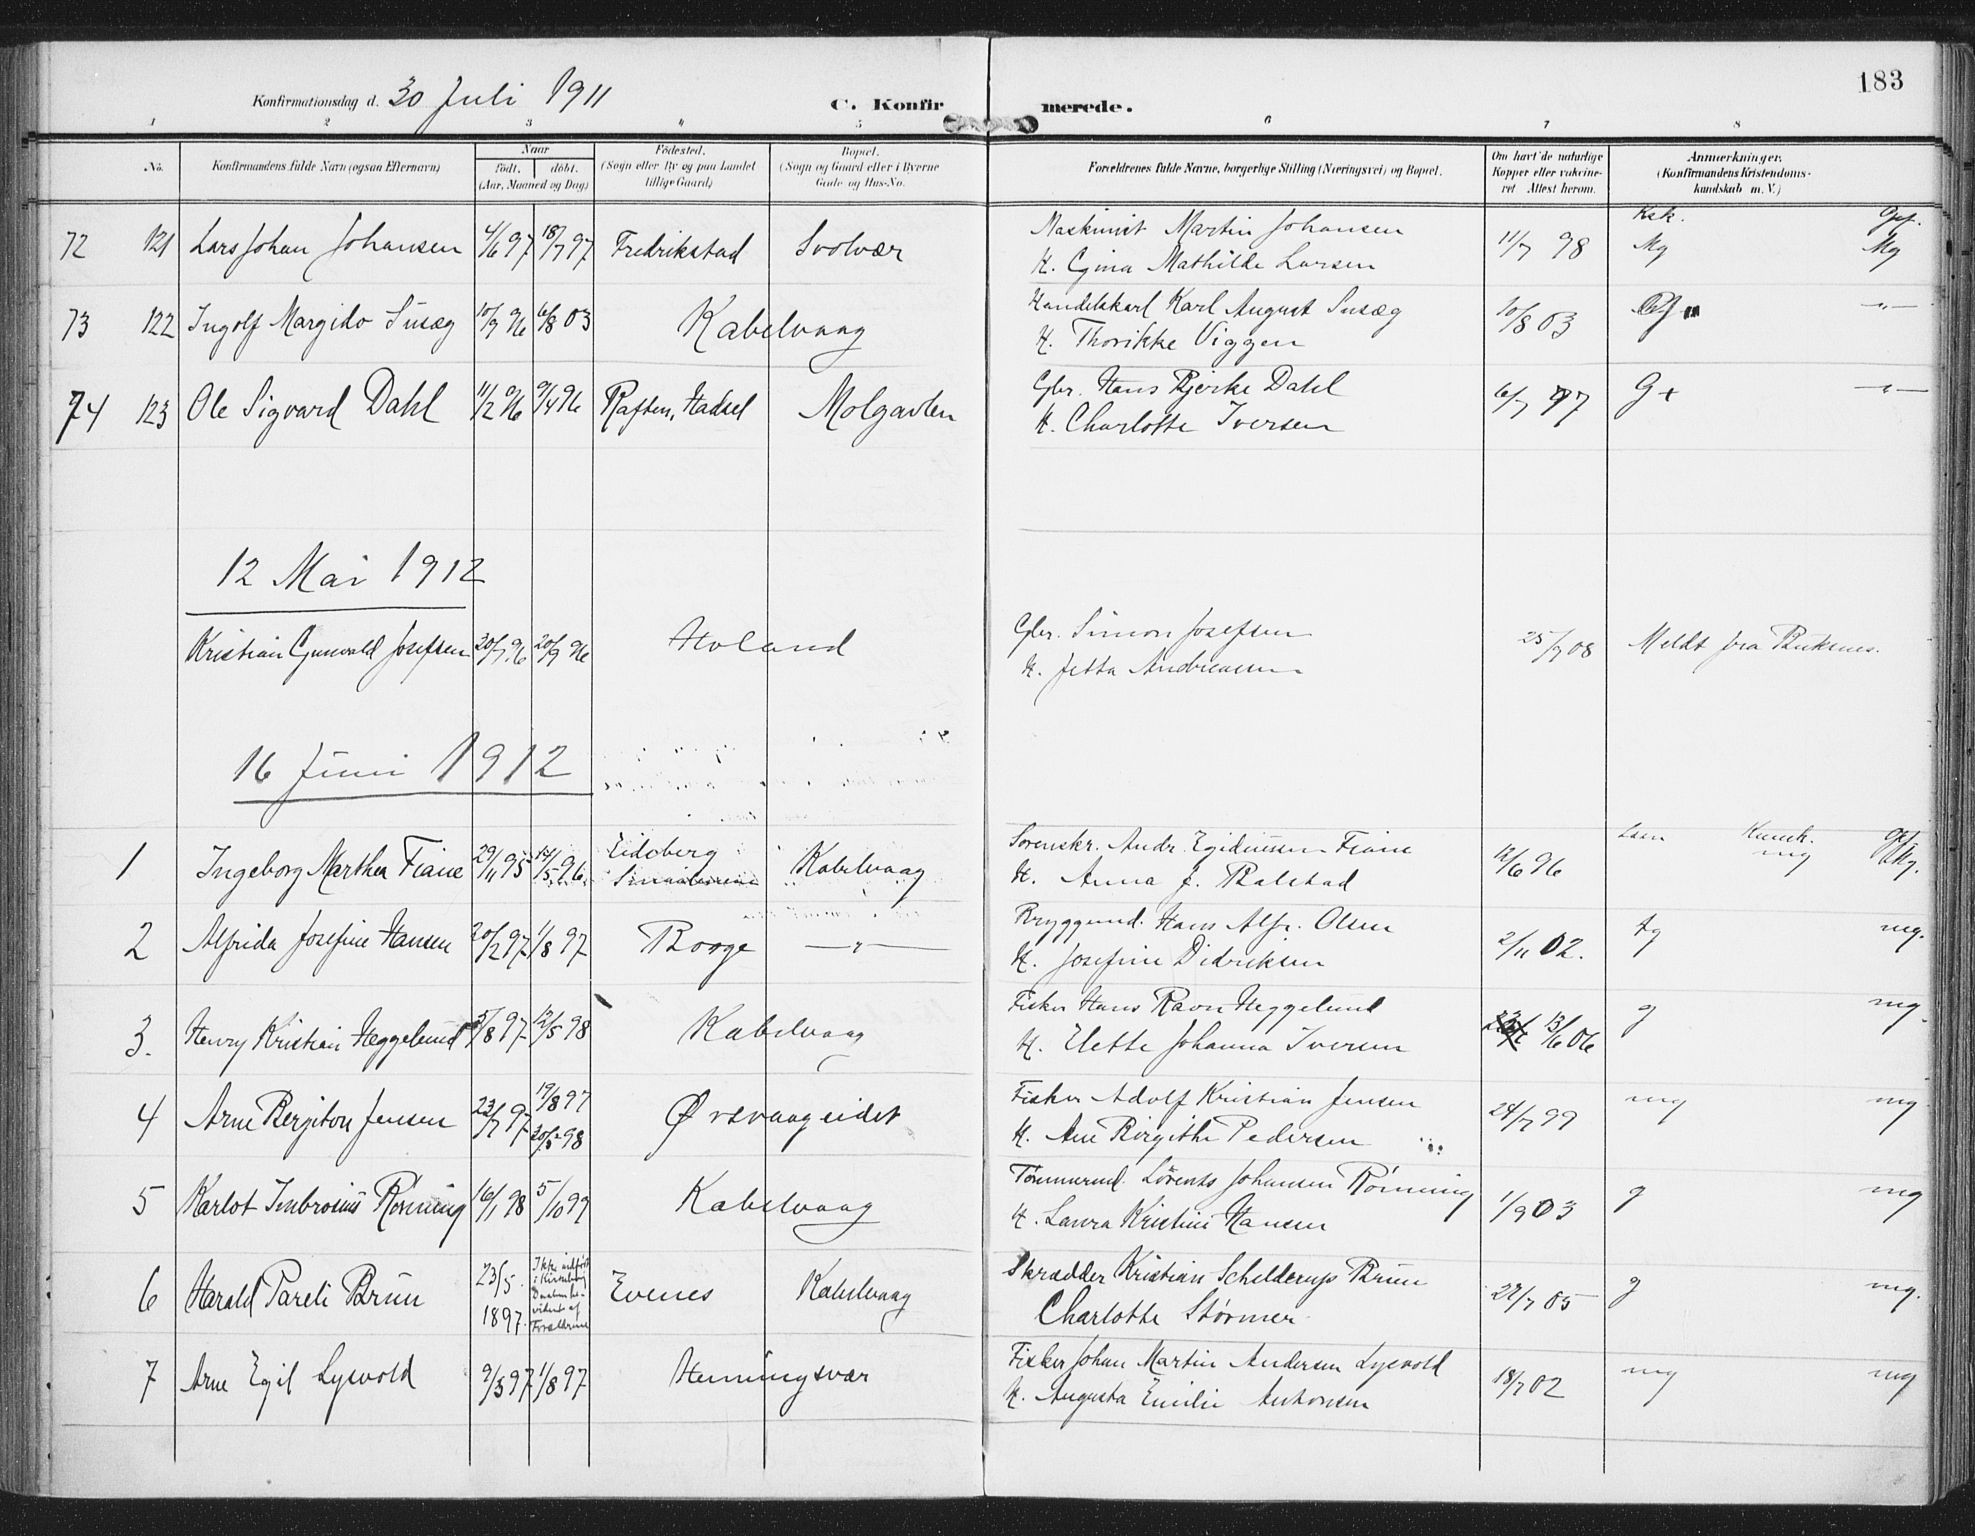 183
Konfirmationsdag d. 30 Juli 1911 C. Konfirmerede.
1 2 3 4 5 6 7 8
No. Konfirmandens fulde Navn (ogsaa Efternavn) Naar født. døbt. (Aar, Maaned og Dag) Fødested. (Sogn eller By og paa Landet tillige Gaard) Bopæl. (Sogn og Gaard eller i Byerne Gade og Hus-No. Forældrenes fulde Navne, borgerlige Stilling (Næringsvei) og Bopæl. Om havt de naturlige Kopper eller vakcineret. Attest herom. Anmærkninger. (Konfirmandens Kristendomskundskab m. V.)
Ksk. Opf.
72 121 Lars Johan Johansen 4/6 97 18/7 97 Fredrikstad Svolvær Maskinist Martin Johansen 11/7 98 Mg Mg
H. Gina Mathilde Larsen
73 122 Ingolf Margido Susæg 10/9 96 6/8 03 Kabelvaag Handelskarl Karl August Susæg 10/8 03 —"—
H. Thorikke Viggen
74 123 Ole Sigvard Dahl 11/2 96 9/4 96 Raften, Hadsel Molgavlen Gbr. Hans Bjerke Dahl 6/7 97 G+ —"—
H. Charlotte Iversen
12 Mai 1912
Kristian Gunvald Josefsen 20/7 96 20/9 96 Holand Gbr. Simon Josefsen 25/7 08 Meldt fra Buksnes.
H. Jetta Andreassen
16 Juni 1912
Kunsk. Opf.
1 Ingeborg Marthea Fiane 29/11 95 14/5 96 Eidsberg Smaalenene Kabelvaag Sorenskr. Andr. Egidiussen Fiane 12/6 96 mg Mg.
H. Anna J. Balstad
2 Alfrida Josefine Hansen 20/2 97 1/8 97 Borge —"— Bryggemd. Hans Alfr. Olsen 2/11 02. tg mg.
H. Josefine Didriksen
3. Henry Kristian Heggelund 5/8 97 12/5 98 Kabelvaag Fisker Hans Ravn Heggelund 13/6 06 g mg.
H. Elette Johanna Iversen
4 Arne Bergiton Jensen 23/7 97 19/8 97 Ørsvaageidet Fisker Adolf Kristian Jensen 24/7 99 mg mg
20/2 98 H. Ane Birgithe Pedersen
5 Karlot Imbrosius Rønning 16/1 98 5/10 99 Kabelvaag Tømmermd. Lorents Johansen Rønning 1/9 03 g mg
H. Laura Kristine Hansen
6 Harald Pareli Brun 23/5 1897. Ikke indført i Kirkebog Daaben bevidnet af Forældrene Evenes Kabelvaag Skrædder Kristian Schelderup Brun 22/7 05 g mg.
Charlotte Størmer
7 Arne Egil Lysvold 9/3 97 1/8 97 Henningsvær Fisker Johan Martin Andersen Lysvold 18/7 02 mg mg
H. Augusta Emilie Antonsen